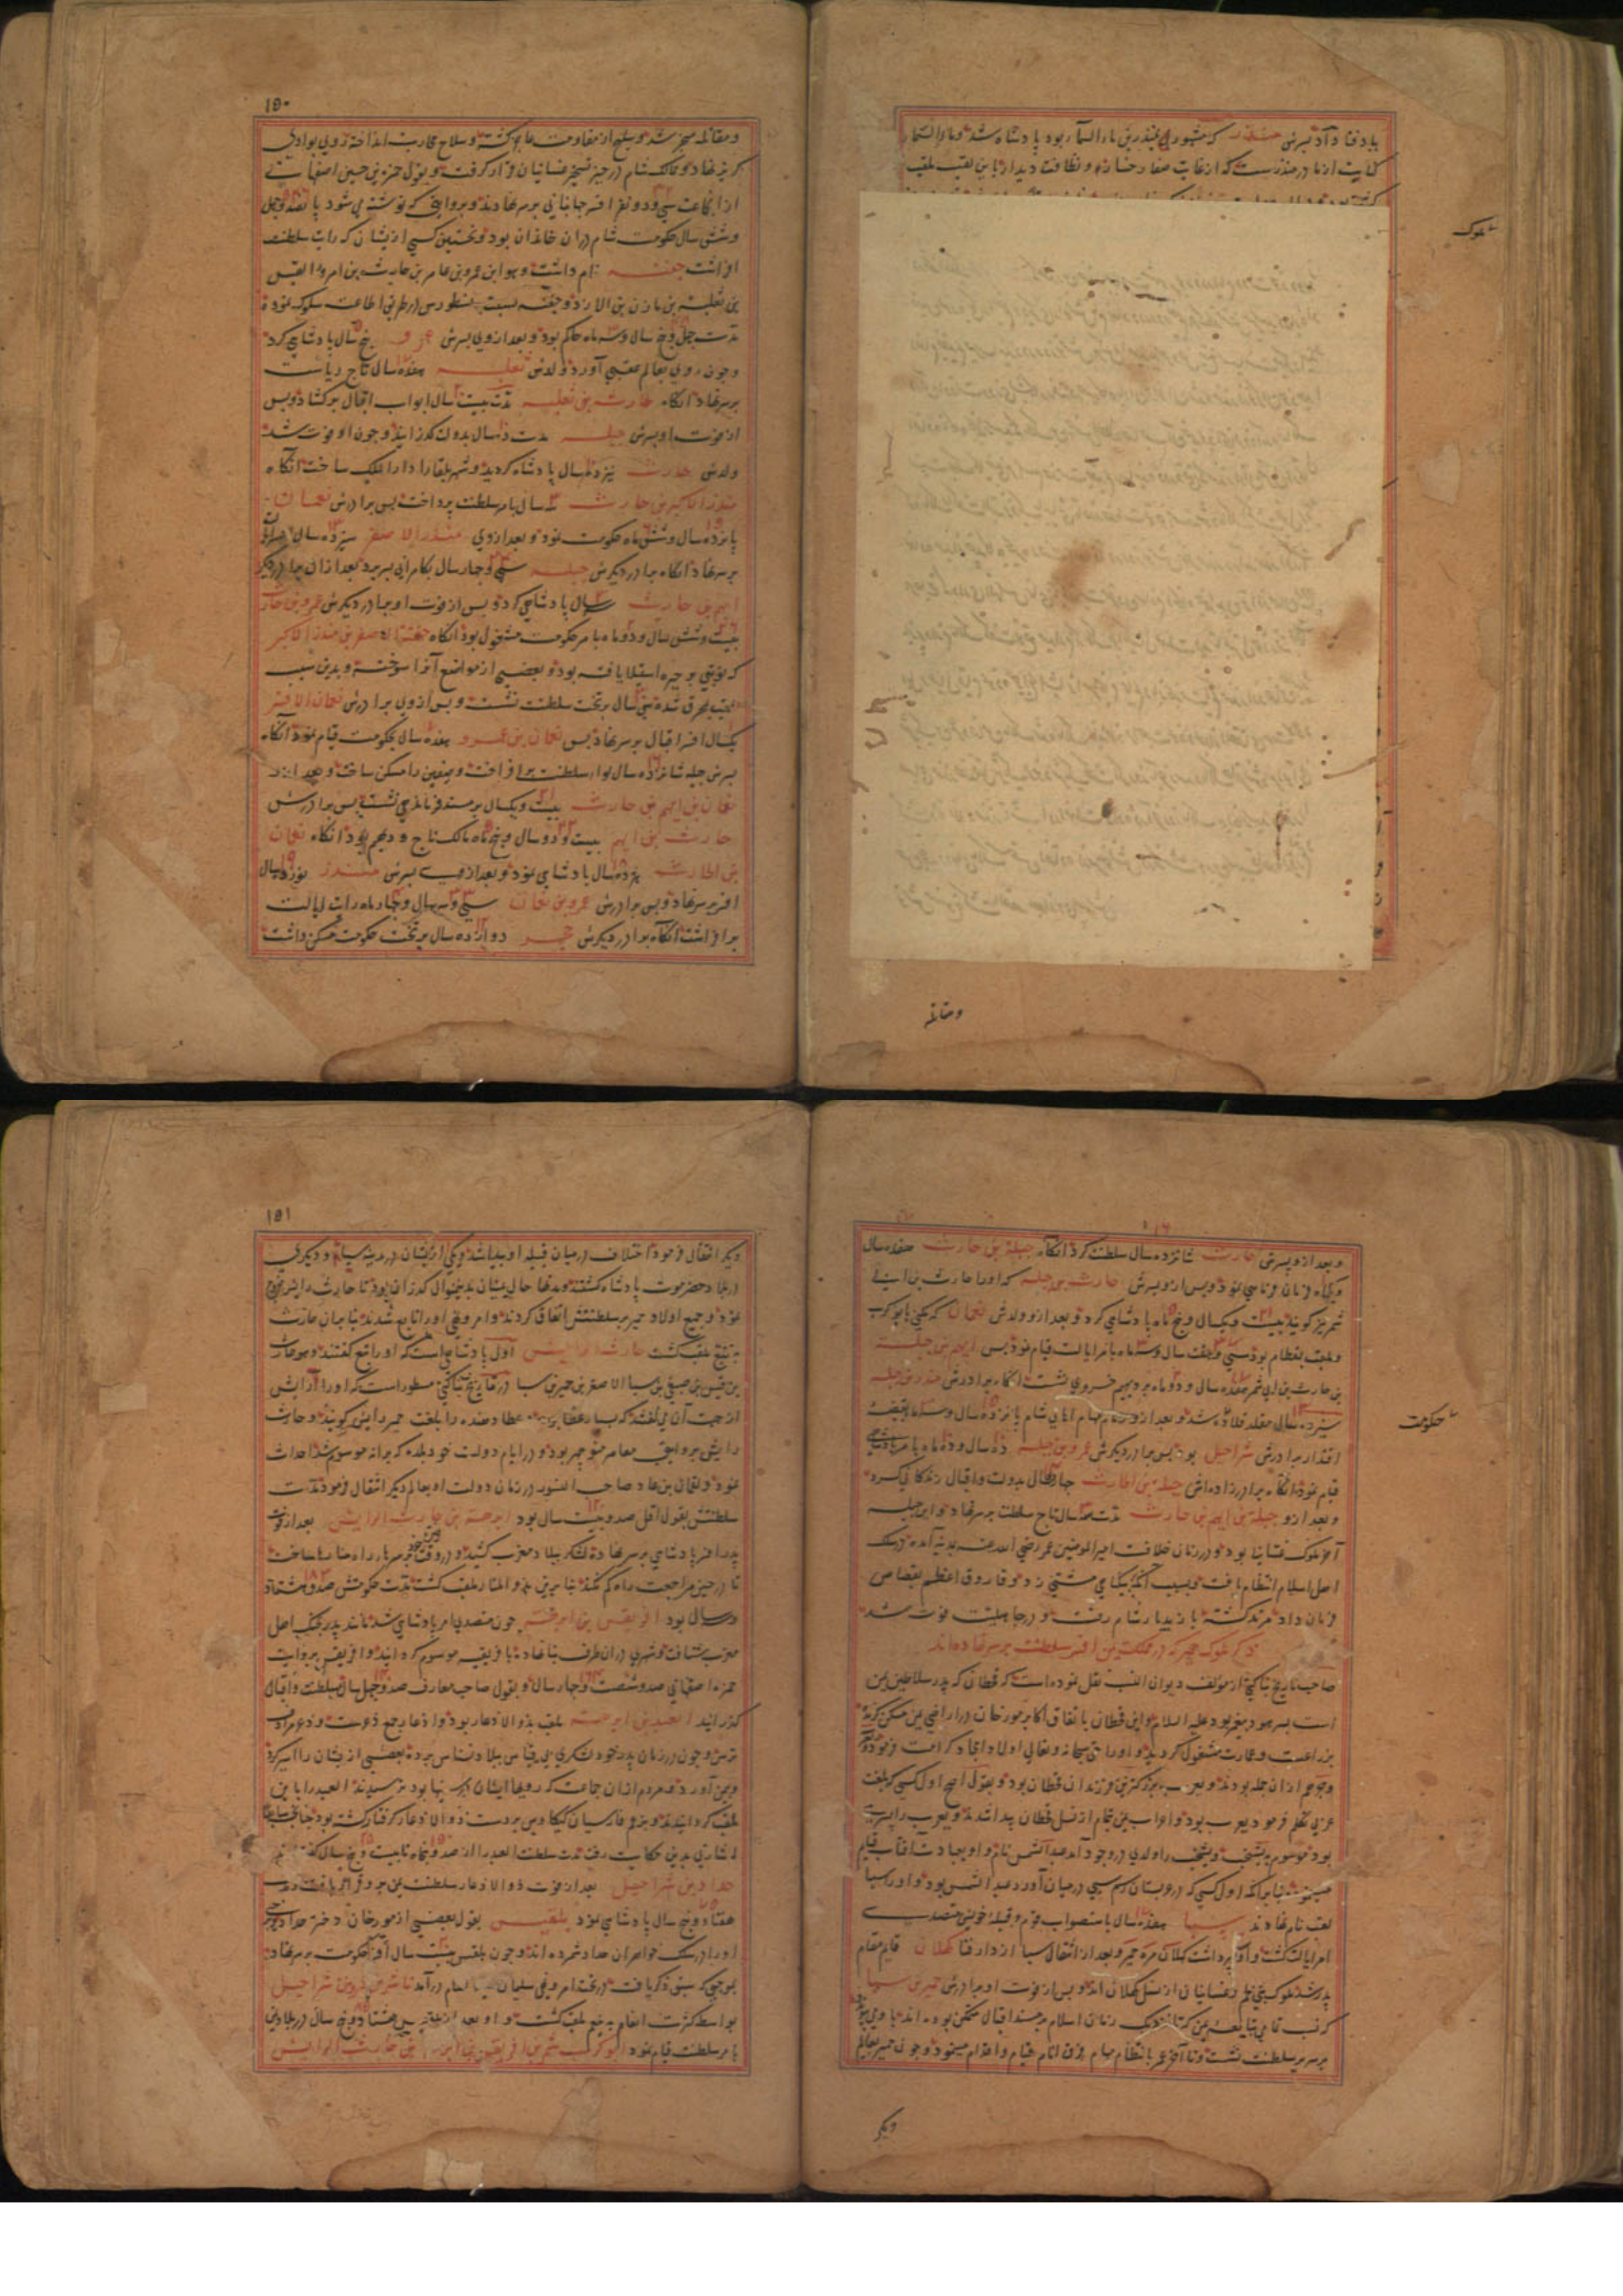 بباد فنا داد پسرش منذر که مشهور به منذر بن ماء السما بود پادشاه شد و ماء السما
کنایت از مادر منذرست که از غایت صفاء رخساره و نظافت دیدار باین لقب ملقب
ملوک
ومقاتله
۱۵۰
و مقاتله منجر شد و سلیح از مقاومت عاجز گشته و سلاح محاربت انداخته روی بوادی
گریز نهاد و ممالک شام در حیز تسخیر غسانیان قرار گرفت و بقول حمزه بن حسین اصفهانی
ازان جماعت سی و دو نفر افسر جهانبانی بر سر نهادند و بروایتی که نوشته می شود پانصد و چهل
و شش سال حکومت شام دران خاندان بود و نخستین کسی ازیشان که رایت سلطنت
افراشت جفنه نام داشت و هو ابن عمرو بن عامر بن حارثه بن امرء القیس
بن ثعلبه بن مازن بن الازد و جفنه نسبت بنسطورس در طریق اطاعت سلوک نموده
مدت چهل و پنج سال و سه ماه حاکم بود و بعد از وی پسرش عمرو پنج سال پادشاهی کرد
و چون روی بعالم عقبی آورد ولدش ثعلبه هفده سال تاج ریاست
بر سر نهاد آنگاه حارث بن ثعلبه مدت بیست سال ابواب اقبال بر گشاد و پس
از فوت او پسرش جبله مدت ده سال بدولت گذرانید و چون او فوت شد
ولدش حارث نیز ده سال پادشاه گردید و شهر بلقا را دار الملک ساخت آنگاه
منذر اکبر بن حارث سه سال بامر سلطنت پرداخت پس برادرش نعمان
پانزده سال و شش ماه حکومت نمود و بعد از وی منذر الاصغر سیزده سال
بر سر نهاد آنگاه برادر دیگرش جبله سی و چهار سال بکامرانی بسر برد بعد ازان برادر دیگر
ایهم بن حارث سه سال پادشاهی کرد و پس از فوت او برادر دیگرش عمرو بن حارث
بیست و شش سال و دو ماه بامر حکومت مشغول بود آنگاه جفنه الاصغر بن منذر الاکبر
که نوبتی بر حیره استیلا یافته بود و بعضی از مواضع آنرا سوخته و بدین سبب
بلقب محرق شده سی سال بر تخت سلطنت نشست و پس از وی برادرش نعمان الاصغر
یکسال افسر اقبال بر سر نهاد پس نعمان بن عمرو هفده سال بحکومت قیام نمود آنگاه
پسرش جبله شانزده سال لواء سلطنت بر افراخت و صفین را مسکن ساخت و بعد ازو
نعمان بن ایهم بن حارث بیست و یکسال بر مسند فرماندهی نشست پس برادرش
حارث بن ایهم بیست و دو سال و پنج ماه مالک تاج و دیهیم بود آنگاه نعمان
بن الحارث هژده سال پادشاهی نمود و بعد از وی پسرش منذر نوزده سال
افسر بر سر نهاد و پس برادرش عمرو بن نعمان سی و سه سال و چهار ماه رایت ایالت
برافراشت آنگاه برادر دیگرش حجر دوازده سال بر تخت حکومت متمکن داشت
و بعد ازو پسرش حارث شانزده سال سلطنت کرد آنگاه جبله بن حارث هفده سال
و یکماه فرمان فرمایی نمود و پس ازو پسرش حارث بن جبله که او را حارث بن ابی
شمر نیز گویند بیست و یکسال و پنج ماه پادشاهی کرد و بعد ازو ولدش نعمان که مکنی بابو کرب
و ملقب بقطام بود سی و هفت سال و سه ماه بامر ایالت قیام نمود پس ایهم بن جبله
بن حارث بن ابی شمر هفده سال و دو ماه بر دیهیم خسروی نشست آنگاه برادرش منذر بن جبله
سیزده سال متقلد قلاده شد و بعد ازو زمام مهام اهالی شام پانزده سال و سه ماه بقبضه
اقتدار برادرش شراحیل بود پس برادر دیگرش عمرو بن جبله ده سال و ده ماه بامر پادشاهی
قیام نمود آنگاه برادرزاده اش جبله بن الحارث چهار سال بدولت و اقبال زندگانی کرد
و بعد ازو جبله بن ایهم بن حارث مدت سه سال تاج سلطنت بر سر نهاد و این جبله
آخر ملوک غسانیه بود و در زمان خلافت امیر المومنین عمر رضی الله عنه بمدینه آمده در سلک
اهل اسلام انتظام یافت و بسبب آنکه بیگناهی مشتی زد و فاروق اعظم بقصاص
فرمان داد مرتد گشته باز بدیار شام رفت و در جاهلیت فوت شد
ذکر ملوک حمیر که در مملکت یمن افسر سلطنت بر سر نهاده اند
صاحب تاریخ بناکتی از مؤلف دیوان النسب نقل نموده است که قحطان که پدر سلاطین یمن
است پسر هود پیغمبر بود علیه السلام و این قحطان باتفاق اکابر مورخان در اراضی یمن مسکن گزیده
بزراعت و عمارت مشغول گردید و او را حق سبحانه و تعالی اولاد امجاد کرامت فرمود
و جرهم ازان جمله بودند و یعرب بزرگترین فرزندان قحطان بود و بقول اصح اول کسی که بلغت
عربی تکلم فرمود یعرب بود و اعراب یمن تمام از نسل قحطان پیدا شدند و یعرب را پسری
بود موسوم به یشجب و یشجب را ولدی در وجود آمد عبد الشمس نام و او بعبادت آفتاب قیام
مینمود بنابرآنکه اول کسی که در عربستان رسم سبی در میان آورد عبد الشمس بود و او را سبا
لقب نام نهادند سبا هفده سال باستصواب قوم و قبیله خویش متصدی
امر ایالت گشت و او پسر داشت کهلان مره حمیر و بعد از انتقال سبا از دار فنا کهلان قایم مقام
پدر شد ملوک بنی لخم و غسانیان از نسل کهلان اند و پس از فوت او برادرش حمیر بن سبا
که نسب تمامی تبایعه یمن که تا نزدیک زمان اسلام بر مسند اقبال متمکن بوده اند باو می پیوندد
بر سریر سلطنت نشست و تا آخر عمر بانتظام مهام فرق انام قیام و اقدام مینمود و چون حمیر بعالم
حکومت
دیگر
۱۵۱
دیگر انتقال فرمود اختلاف در میان قبیله او پیدا شد و یکی ازیشان در مدینه سبا و دیگری
در بلاد حضرموت پادشاه گشتند و مدتها حال یمنیان بدین منوال گذران بود تا حارث رایش خروج
نمود و جمیع اولاد حمیر بر سلطنتش اتفاق کردند و امر و نهی او را تابع شدند بنابران حارث
به تبع ملقب گشت حارث الرایش اول پادشاهی است که او را تبع گفتند و هو حارث
بن قیس بن صیفی بن سبا الاصغر بن حمیر بن سبا در تاریخ بناکتی مسطور است که او را رایش
از جهت آن می گفتند که بسیار عطا بود و عطا دهنده را بلغت حمیر رایش گویند و حارث
رایش بروایتی معاصر منوچهر بود و در ایام دولت خود بلده که برانه موسوم شد احداث
نمود و لقمان بن عاد صاحب النسور در زمان دولت او بعالم دیگر انتقال فرمود مدت
سلطنتش بقول اقل صد و بیست سال بود ابرهه بن حارث الرایش بعد از فوت
پدر افسر پادشاهی بر سر نهاده لشکر ببلاد مغرب کشید و در وقت رفتن بر سر راه منارها ساخت
تا در حین مراجعت راه گم نکند بنابرین بذو المنار ملقب گشت مدت حکومتش صد و هشتاد
و سه سال بود افریقس بن ابرهه چون متصدی امر پادشاهی شد مانند پدر بجنگ اهل
مغرب شتافت و شهری دران طرف بنا نهاده بافریقیه موسوم گردانید و افریقس بروایت
حمزه اصفهانی صد و شصت و چهار سال و بقول صاحب معارف صد و چهل سال بسلطنت و اقبال
گذرانید العبد بن ابرهه ملقب بذو الاذعار بود و اذعار جمع ذعرست و ذعر مرادف
ترس و چون در زمان پدر خود لشکری بی قیاس ببلاد نسناس برده بعضی ازیشان را اسیر کرد
و بیمن آورد و مردم ازان جماعت که رویهای ایشان بر سینها بود ترسیدند العبد را باین
لقب گردانیدند و بزعم فارسیان کیکاوس بر دست ذو الاذعار گرفتار گشته بود چنانچه سابقا
اشارتی بدین حکایت رفت مدت سلطنت العبد را از صد و پنجاه تا بیست و پنج سال گفته اند
هداد بن شراحیل بعد از فوت ذو الاذعار سلطنت یمن برو قرار یافت و مدت
هفتاد و پنج سال پادشاهی نمود بلقیس بقول بعضی از مورخان دختر هداد بود و جمعی
او را در سلک خواهران هداد شمرده اند و چون بلقیس بیست سال افسر حکومت بر سر نهاد
بموجبی که سبق ذکر یافت در تحت امر و نهی سلیمان علیه السلام در آمد ناشر بن عمرو بن شراحیل
بواسطه کثرت انعام به ینعم ملقب گشت و او بعد از بلقیس هشتاد و پنج سال در بلاد یمن
بامر سلطنت قیام نمود ابو کرب شمر بن افریقس بن ابرهه بن حارث الرایش